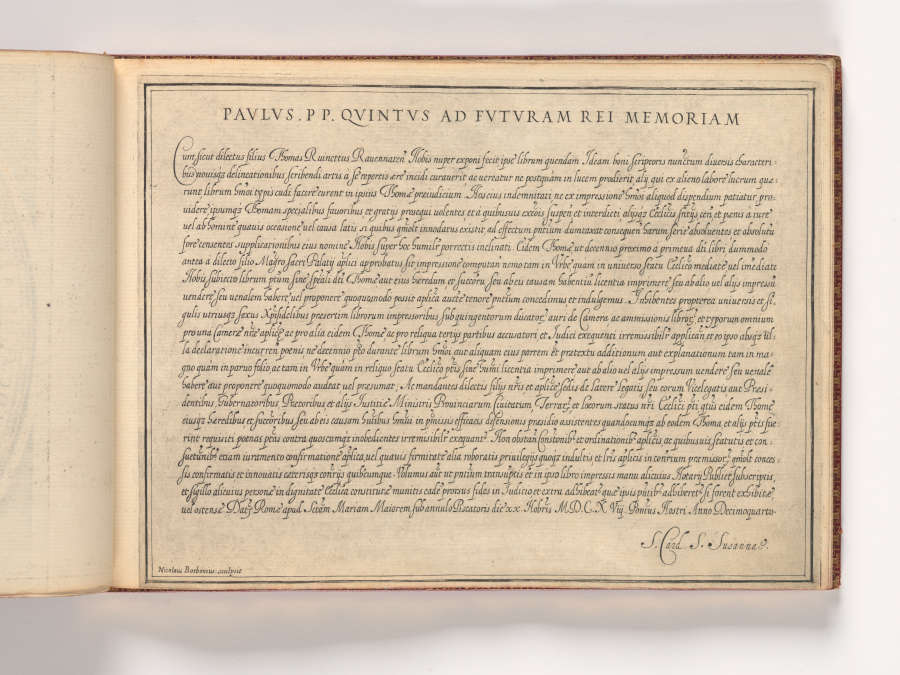 PAVLVS. P P. QVINTVS AD FVTVRAM REI MEMORIAM
Cum sicut dilectus filius Thomas Ruinettus Rauennateñ Nobis nuper exponi fecit ipse librum quendam Ideam boni scriptoris nunctum diuersis characteri-
bus nouisqȝ delineationibus scribendi artis a se repertis aere incidi curauerit ac uereatur ne postquàm in lucem prodierit alij qui ex alieno labore lucrum quae-
runt librum hmõi typis cudi facere curent in ipsius Thomae praeiudicium. Nos eius indemnitati ne ex impressione hmõi aliquod dispendium patiatur pro-
uidere ipsumqȝ Thomam specialibus fauoribus et gratijs prosequi uolentes et à quibusuis excõis suspen et interdicti alijsqȝ Ecclicis sntijs cen et paenis a iure
uel ab homine quauis occasione uel causa latis si quibus quõlt innodatus existit ad effectum pntium dumtaxat consequen harum serie absoluentes et absolutu
fore censentes supplicationibus eius nomine Nobis super hoc humilr porrectis inclinati. Eidem Thomae ut decennio proximo a primeua dti libri dummodo
antea a dilecto filio Magrõ Sacri Palatij aplici approbatus sit impressione computan nemo tam in Vrbe quam in uniuerso statu Ecclico mediate uel imediate
Nobis subiecto librum ptum sine speali dti Thomae aut eius haeredum et succorũ seu ab eis causam habentiũ licentia imprimere seu ab alio uel alijs impressũ
uendere seu uenalem habere uel proponere quoquomodo possit aplica aucte tenore pntium concedimus et indulgemus. Inhibentes propterea uniuersis et si-
gulis utriusqȝ sexus Xpifidelibus presertim librorum impressoribus sub quingentorum ducatorȝ auri de Camera ac ammissionis librorȝ et typorum omnium
pro una Camerae nrae aplicae ac pro alia eidem Thomae ac pro reliqua tertijs partibus accusatori et Iudici exequenti irremissibilr applican et eo ipso absqȝ ul-
la declaratione incurren poenis ne decennio pto durante librum hmõi aut aliquam eius partem et pretextu additionum aut explanationum tam in ma-
gno quam in paruo folio ac tam in Vrbe quàm in reliquo statu Ecclico ptis sine hmõi licentia imprimere aut ab alio uel alijs impressum uendere seu uenale
habere aut proponere quoquomodo audeat uel praesumat. Ac mandantes dilectis filijs nris et aplicae Sedis de latere legatis seu eorum Vicelegatis aut Praesi-
dentibus, Gubernatoribus Praetoribus et alijs Iustitiae Ministris Prouinciarum Ciuitatum, Terrarȝ, et locorum status nri Ecclici pti qtus eidem Thomae
eiusqȝ haeredibus et succoribus seu ab eis causam hntibus hmõi in pmissis efficacis defensionis praesidio assistentes quandocumqȝ ab eodem Thoma et alijs ptis fue-
rint requisiti poenas ptas contra quoscumqȝ inobedientes irremisibilr exequant. Non obstan Constõnibȝ et ordinationibȝ aplicis ac quibusuis statutis et con-
suetunibȝ etiam iuramento confirmatione aplica uel quauis firmitate alia roboratis priuilegijs quoqȝ indultis et lris aplicis in contrium praemissorȝ quõlt conces-
sis confirmatis et innouatis caeterisqȝ contrijs quibuscumque. Volumus aut ut pntium transumptis et in ipso libro impressis manu alicuius Notarij Publici subscriptis,
et sigillo alicuius personae in dignitate Ecclica constitutae munitis eadẽ prorsus fides in Iudicio et extra adhibeat quae ipsis pntibȝ adhiberet si forent exhibitae,
uel ostensae Dat Romae apud Sctam Mariam Maiorem sub annulo Piscatoris die x x Nobris M.D.C.X Viij. Pontus Nostri Anno Decimoquarto.
S. Card. S. Susannae.
Nicolaus Borbonius sculpsit